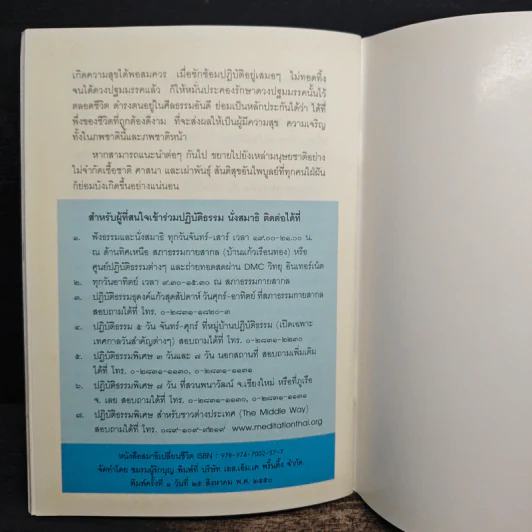 เกิดความสุขได้พอสมควร เมื่อซักซ้อมปฏิบัติอยู่เสมอๆ ไม่ทอดทิ้ง
จนได้ดวงปฐมมรรคแล้ว ก็ให้หมั่นประคองรักษาดวงปฐมมรรคนั้นไว้
ตลอดชีวิต ดำรงตนอยู่ในศีลธรรมอันดี ย่อมเป็นหลักประกันได้ว่า ได้ที่
พึ่งของชีวิตที่ถูกต้องดีงาม ที่จะส่งผลให้เป็นผู้มีความสุข ความเจริญ
ทั้งในภพชาตินี้และภพชาติหน้า
หากสามารถแนะนำต่อๆ กันไป ขยายไปยังเหล่ามนุษยชาติอย่าง
ไม่จำกัดเชื้อชาติ ศาสนา และเผ่าพันธุ์ สันติสุขอันไพบูลย์ที่ทุกคนใฝ่ฝัน
ก็ย่อมบังเกิดขึ้นอย่างแน่นอน
สำหรับผู้ที่สนใจเข้าร่วมปฏิบัติธรรม นั่งสมาธิ ติดต่อได้ที่
๑. ฟังธรรมและนั่งสมาธิ ทุกวันจันทร์-เสาร์ เวลา ๑๙.๐๐-๒๑.๐๐ น.
ณ ด้านทิศเหนือ สภาธรรมกายสากล (บ้านแก้วเรือนทอง) หรือ
ศูนย์ปฏิบัติธรรมต่างๆ และถ่ายทอดสดผ่าน DMC วิทยุ อินเทอร์เน็ต
๒. ทุกวันอาทิตย์ เวลา ๙.๓๐-๑๕.๓๐ ณ สภาธรรมกายสากล
๓. ปฏิบัติธรรมธุดงค์แก้วสุดสัปดาห์ วันศุกร์-อาทิตย์ ที่สภาธรรมกายสากล
สอบถามได้ที่ โทร. ๐-๒๘๓๑-๑๘๒๐-๓
๔. ปฏิบัติธรรม ๕ วัน จันทร์-ศุกร์ ที่หมู่บ้านปฏิบัติธรรม (เปิดเฉพาะ
เทศกาลวันสำคัญต่างๆ) สอบถามได้ที่ โทร. ๐-๒๘๓๑-๒๒๓๐
๕. ปฏิบัติธรรมพิเศษ ๓ วันและ ๗ วัน นอกสถานที่ สอบถามเพิ่มเติม
ได้ที่ โทร. ๐-๒๘๓๑-๑๑๓๐, ๐-๒๘๓๑-๑๑๓๑
๖. ปฏิบัติธรรมพิเศษ ๗ วัน ที่สวนพนาวัฒน์ จ.เชียงใหม่ หรือที่ภูเรือ
จ. เลย สอบถามได้ที่ โทร. ๐-๒๘๓๑-๑๑๓๐, ๐-๒๘๓๑-๑๑๓๑
๗. ปฏิบัติธรรมพิเศษ สำหรับชาวต่างประเทศ (The Middle Way)
สอบถามได้ที่ โทร. www.meditationthai.org
หนังสือสมาธิเปลี่ยนชีวิต ISBN :
จัดทำโดย ชมรมผู้รักบุญ พิมพ์ที่ บริษัท เอส.เอ็ม.เค พริ้นติ้ง จำกัด
พิมพ์ครั้งที่ ๑ วันที่ ๒๕ สิงหาคม พ.ศ. ๒๕๕๐